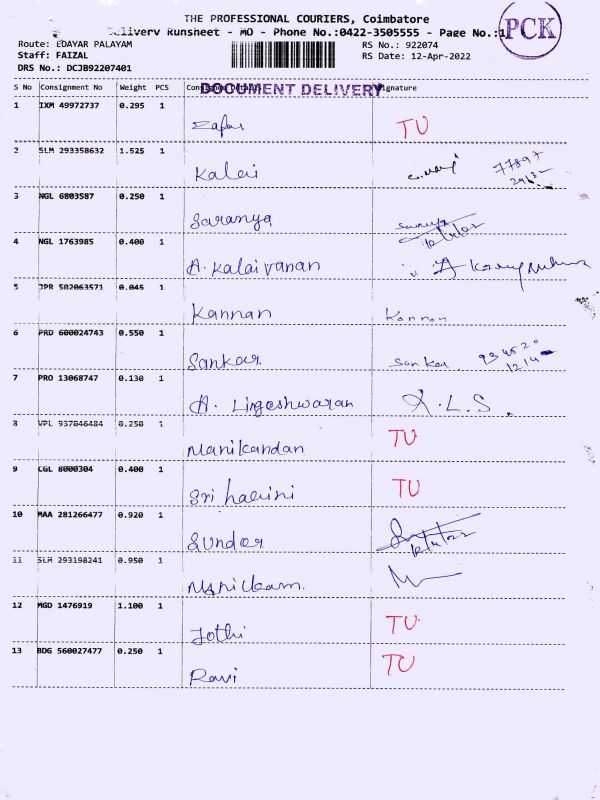 THE PROFESSIONAL COURIERS, Coimbatore
Delivery Runsheet - MO - Phone No.:0422-3505555 - Page No.:1
PCK
Route: EDAYAR PALAYAM
RS No.: 922074
Staff: FAIZAL
RS Date: 12-Apr-2022
DRS No.: DCJB92207401
S No Consignment No Weight PCS Consignee Details Signature
DOCUMENT DELIVERY
1 IXM 49972737 0.295 1
TU
2 SLM 293358632 1.525 1
Kalai
3 NGL 6803587 0.250 1
Saranya
4 NGL 1763985 0.400 1
A. Kalaivanan
5 JPR 502063571 0.045 1
Kannan Kannan
6 PRD 600024743 0.550 1
Sankar Sankar
7 PRO 13068747 0.130 1
A. Lingeshwaran A.L.S.
8 VPL 937046484 0.250 1
Manikandan TU
9 CGL 8000304 0.400 1
Sri harini TU
10 MAA 281266477 0.920 1
Sundar
11 SLM 293198241 0.950 1
Manickam.
12 MGD 1476919 1.100 1
Jothi TU
13 BDG 560027477 0.250 1
Ravi TU